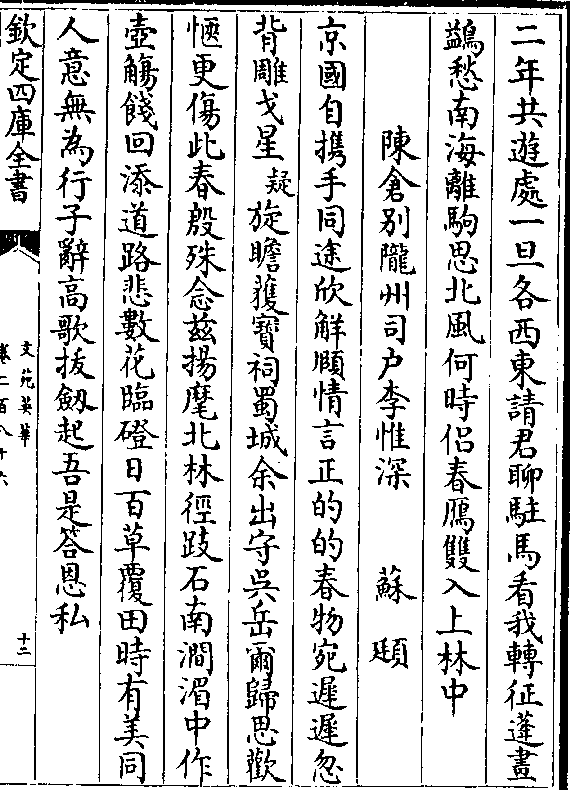 二年共遊處一旦各西東請君聊駐馬看我轉征蓬畫
鷁愁南海離駒思北風何時侣春鴈雙入上林中
陳倉别隴州司户李惟深 蘇頲
京國自攜手同途欣解頥情言正的的春物宛遲遲忽
背雕戈星疑旋瞻獲寳祠蜀城余出守吳岳爾歸思歡
愜更傷此春殷殊念兹揚麾北林徑跂石南澗湄中作
壺觴餞回添道路悲數花臨磴日百草覆田時有美同
人意無為行子辭高歌拔劒起吾是答恩私
欽定四庫全書
文苑英華
卷二百八十六
十二